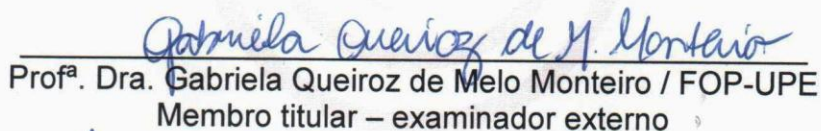 Gabriela Queiroz de M. Monteiro
Profª. Dra. Gabriela Queiroz de Melo Monteiro / FOP-UPE
Membro titular – examinador externo